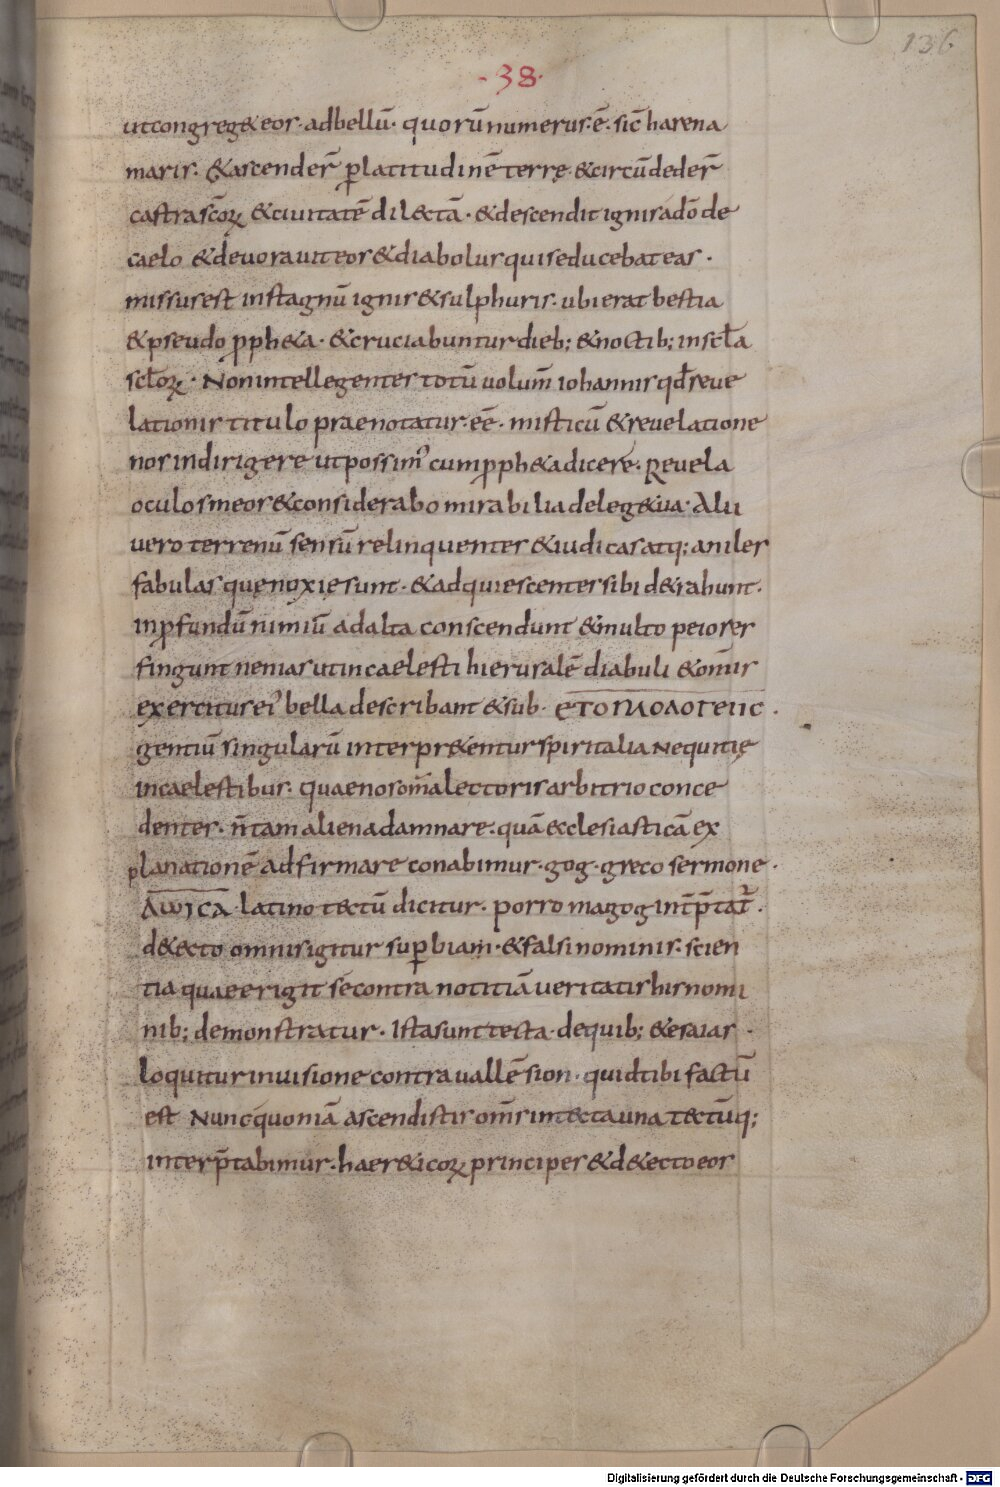 136
·38·
ut congreg& eos· ad bellū· quorū numerus·ē· sic̄ harena
maris· & ascender̄ p̱ latitudinē terrę· & circū deder̄
castra sc̄oꝝ & ciuitatē dilectā· & descendit ignis a dō de
caelo & deuorauit eos & diabolus qui seducebat eas·
missus est in stagnū ignis & sulphuris· ubi erat bestia
& pseudo ꝓph&a· & cruciabuntur dieb; & noctib; in scl̄a
scl̄oꝝ· Non intellegentes totū uolum̄ iohannis qd̄ reue
lationis titulo praenotatur· eē· misticū & reuelatione
nos indirigere ut possim᾽ cum ꝓph&a dicere· Reuela
oculos meos & considerabo mirabilia de leg& ua· Alii
uero terrenū sensū relinquentes & iudicas atq; aniles
fabulas quę noxię sunt· & adquiescentes sibi d&rahunt·
in ꝓfundū nimiū ad alta conscendunt & multo peiores
fingunt nenias ut in caelesti hierusalē diabuli & om̄is
exercitus ei᾽ bella describant & sub· ЄΤΟΙΜΟΛΟΓΕΙΙC·
gentiū singularū interpr&entur spiritalia Nequitię
in caelestibus· quae nos om̄a lectoris arbitrio conce
dentes· n̄ tam aliena damnare· quā ecclesiasticā ex
planationē adfirmare conabimur· gog· greco sermone·
ΔωJCΑ· latino tectū dicitur· porro magog int̄p̄tat̄·
de tecto omnis igitur suꝑbiam· & falsi nominis· scien
tia quae erigit se contra notitiā ueritatis his nomi
nib; demonstratur· Ista sunt tecta· de quib; & esaias·
loquitur in uisione contra vallē sion· quid tibi factū
est Nunc quoniā ascendistis om̄s in tecta una tectūq;
interp̄tabimur· haer&icoꝝ principes & de tecto eos
Digitalisierung gefördert durch die Deutsche Forschungsgemeinschaft - DFG